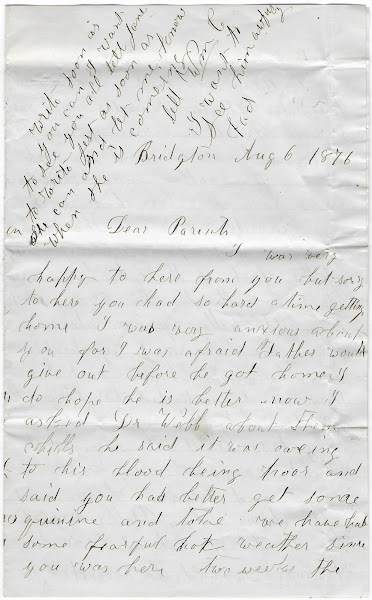 Write soon as
you can I want
to see you all tell Jane
to write just as soon as
she can and let me know
when she is coming
tell Wm C
I want to
see him awfuly
bad
Bridgton Aug 6 1876
Dear Parents
I was very
happy to here from you but sorry
to here you had so hard a time getting
home I was very anxious about
you for I was afraid Father would
give out before he got home I
do hope he is better now I
asked Dr Webb about them
chills he said it was oweing
to his blood being poor and
said you had better get some
quinine and take we have had
some fearful hot weather since
you was here two weeks the